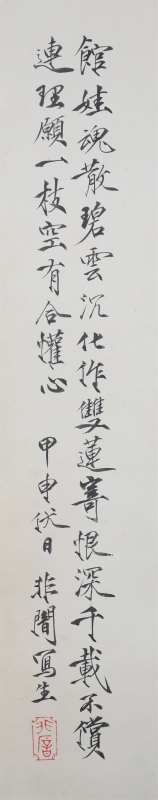 館娃魂散碧雲沉化作雙蓮寄恨深千載不償
連理願一枝空有合懽心
甲申伏日非闇寫生
非闇